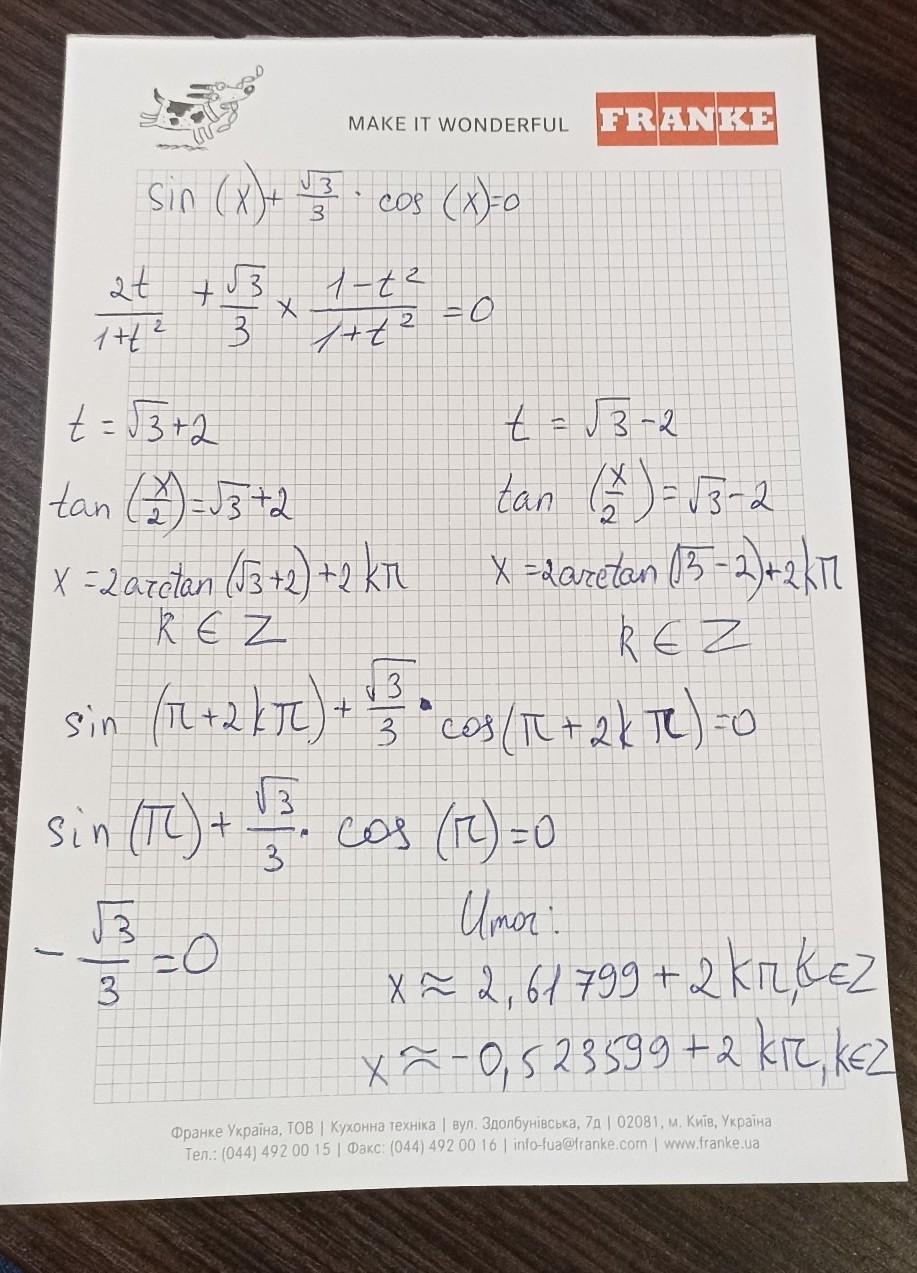 MAKE IT WONDERFUL
FRANKE
sin (x)+ √3/3 · cos (x)=0
2t/1+t² + √3/3 × 1-t²/1+t² =0
t = √3+2
t = √3-2
tan (x/2)=√3+2
tan (x/2)=√3-2
x =2arctan (√3+2)+2kπ
x =2arctan (√3-2)+2kπ
k ∈ Z
k ∈ Z
sin (π+2kπ)+ √3/3 · cos(π+2kπ)=0
sin (π)+ √3/3 · cos (π)=0
- √3/3 =0
Итог:
x ≈ 2,61799+2kπ,k∈Z
x ≈-0,523599+2kπ,k∈Z
Франке Україна, ТОВ | Кухонна техніка | вул. Здолбунівська, 7д | 02081, м. Київ, Україна
Тел.: (044) 492 00 15 | Факс: (044) 492 00 16 | info-fua@franke.com | www.franke.ua